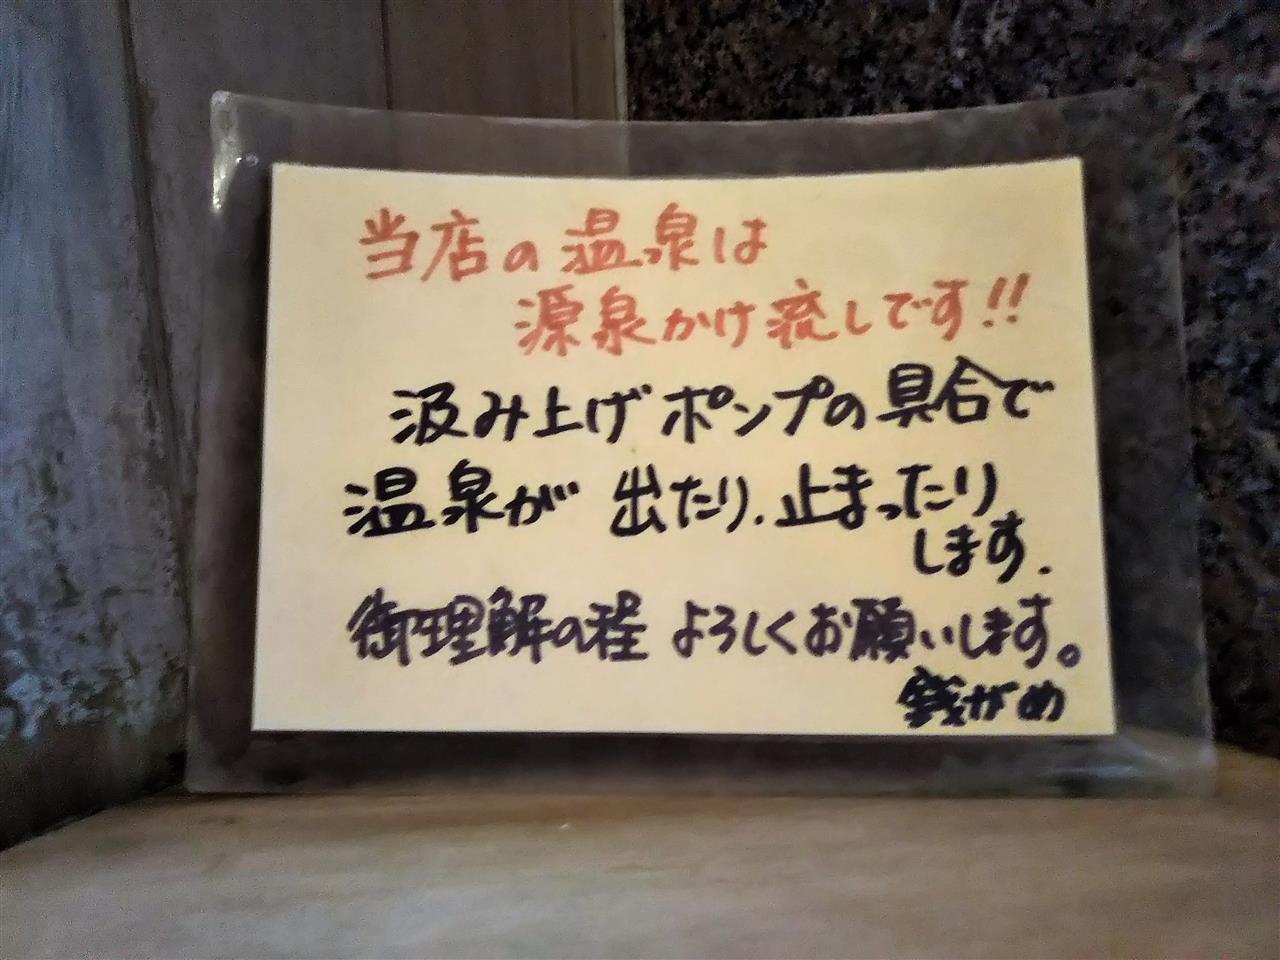 当店の温泉は
源泉かけ流しです!!
汲み上げポンプの具合で
温泉が 出たり、止まったり
します.
御理解の程 よろしくお願いします。
銭がめ